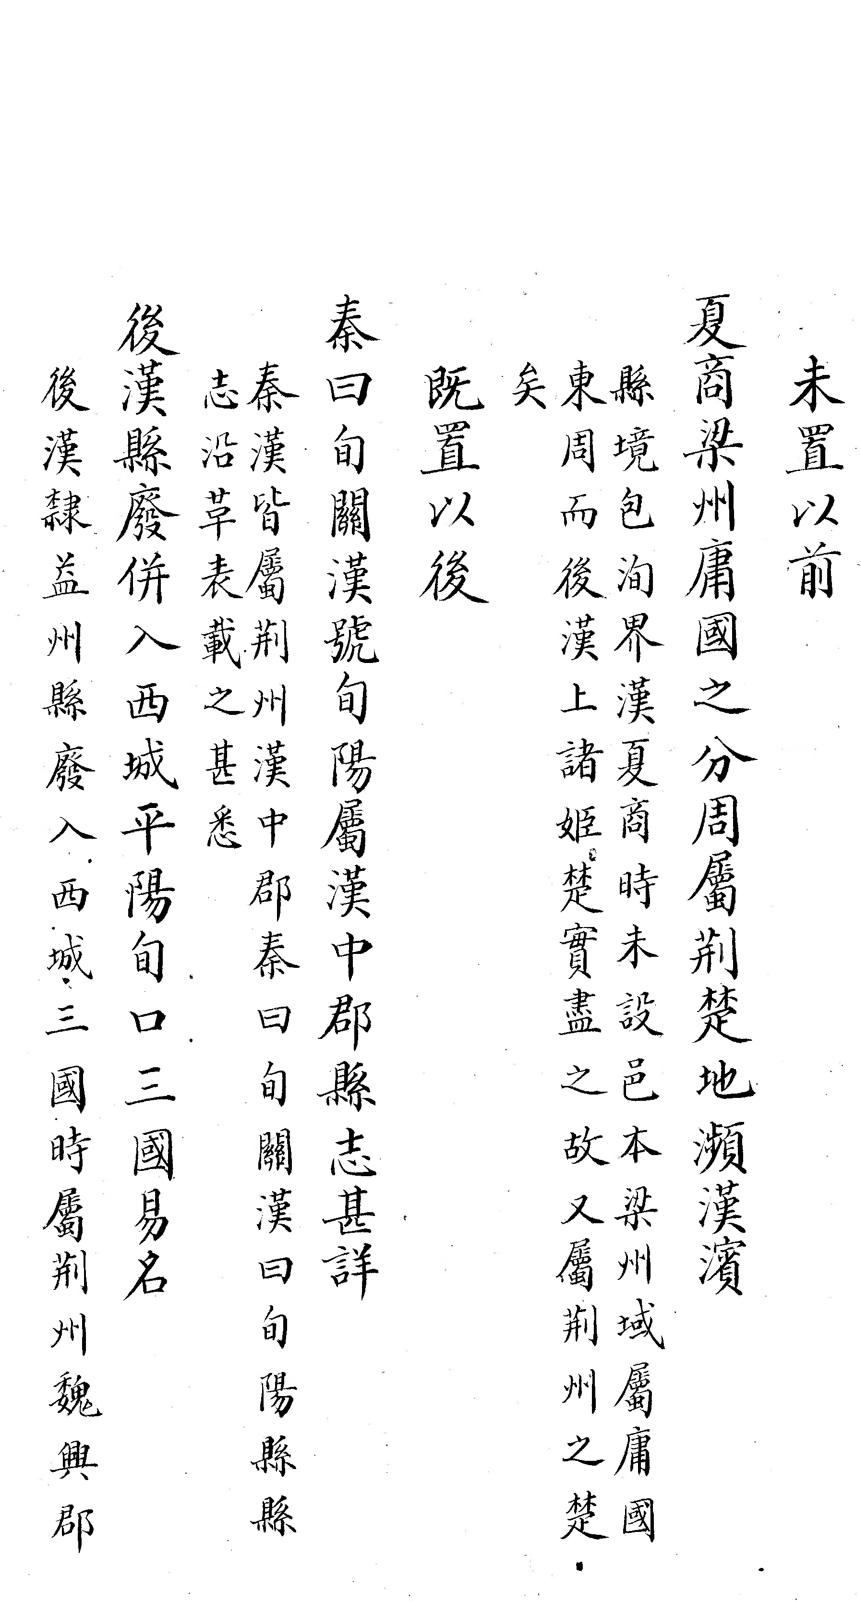 未置以前
夏商梁州庸國之分周屬荆楚地瀕漢濱
縣境包洵界漢夏商時未設邑本梁州域屬庸國
東周而後漢上諸姬楚實盡之故又屬荆州之楚
矣
既置以後
秦曰旬關漢號旬陽屬漢中郡縣志甚詳
秦漢皆屬荆州漢中郡秦曰旬關漢曰旬陽縣縣
志沿革表載之甚悉
後漢縣廢併入西城平陽旬口三國易名
後漢隸益州縣廢入西城三國時屬荆州魏興郡